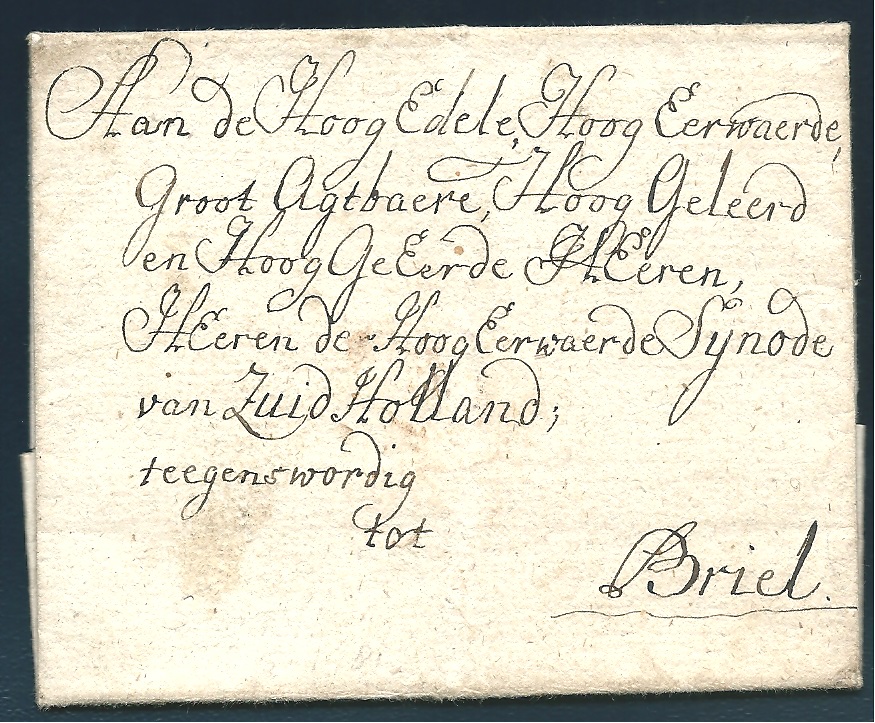 Aan de Hoog Edele, Hoog Eerwaerde,
Groot Agtbaere, Hoog Geleerd
en Hoog GeEerde HEeren,
HEeren de Hoog Eerwaerde Synode
van Zuid Holland;
teegenswordig
tot
Briel.